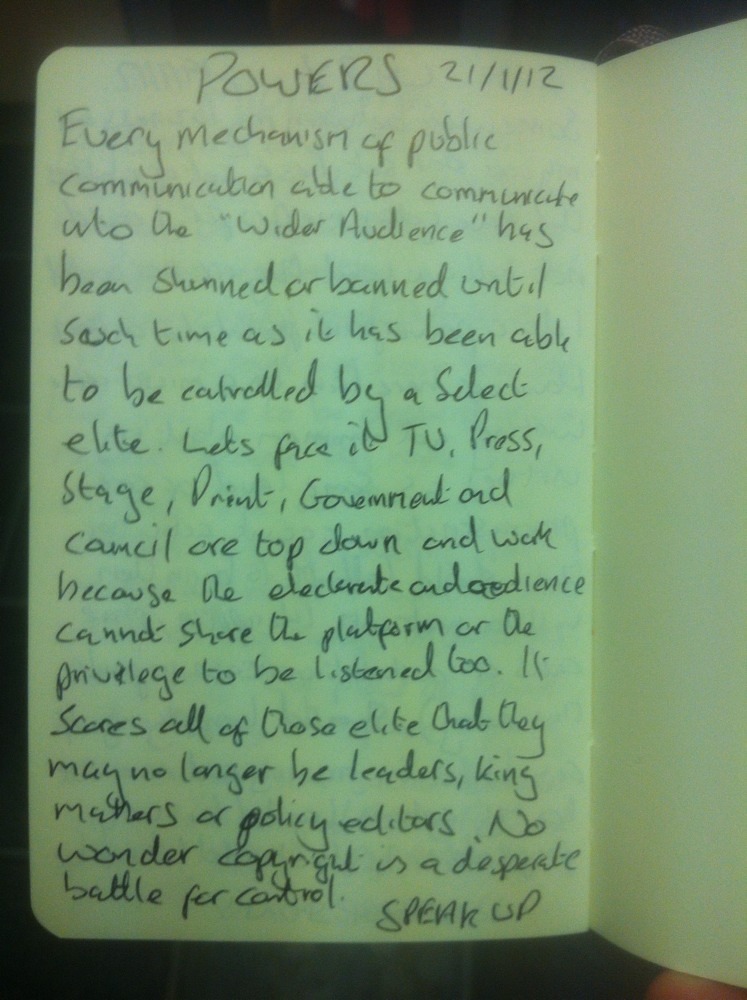 POWERS 21/1/12
Every mechanism of public
communication able to communicate
into the "Wider Audience" has
been shunned or banned until
such time as it has been able
to be controlled by a Select
elite. Lets face it TV, Press,
Stage, Print, Government and
Council are top down and work
because the electorate and audience
cannot share the platform or the
privilege to be listened too. It
Scares all of those elite that they
may no longer be leaders, king
makers or policy editors. No
wonder copyright is a desperate
battle for control.
SPEAK UP